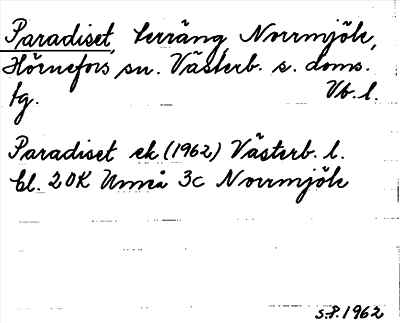 Paradiset, terräng Norrmjöle,
Hörnefors sn. Västerb. s. doms.
tg. Vb. l.
Paradiset ek (1962) Västerb. l.
bl. 20K Umeå 3c Norrmjöle
s.8.1962